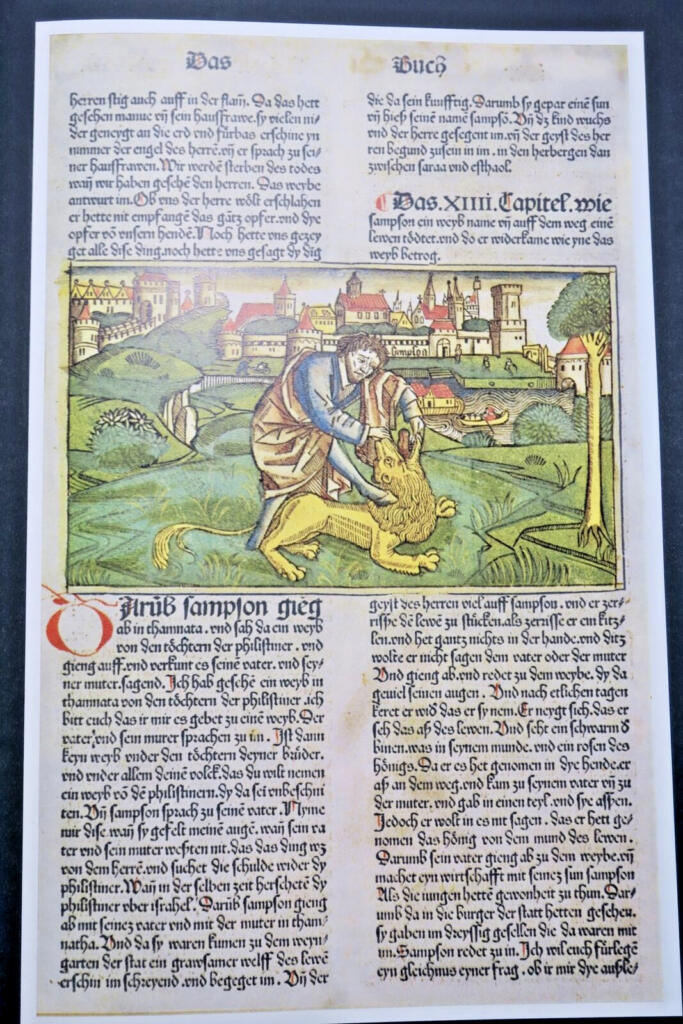 Das Buch
herren stig auch auff in der flam̄. Da das hett
gesehen manue vn̄ sein hausfrawe. sy vielen ni-
der geneygt an die erd vnd fúrbas erschine yn
nymmer der engel des herrē. vn̄ er sprach zu sei-
ner hausfrawen. Wir werdē sterben des todes
wan̄ wir haben gesehē den herren. Das weybe
antwurt im. Ob vns der herre wólt erschlahen
er hette nit empfangē das gātz opfer. vnd dye
opfer vō vnsern hendē. Noch hette vns gezey
get alle dise ding. noch hette vns gesagt dy dīg
die da sein kúnfftig. Darumb sy gepar einē sun
vn̄ hieß seinē name sampsō. Vn̄ dz kind wuchs
vnd der herre gesegent im. vn̄ der geyst des her
ren begund zusein in im. in den herbergen dan
zwischen saraa vnd esthaol.
Das. XIIII. Capitel. wie
sampson ein weyb name vn̄ auff dem weg einē
lewen tódtet. vnd do er widerkame wie yne das
weyb betrog.
sampson
DArūb sampson gieg
ab in thamnata. vnd sah da ein weyb
von den tóchtern der philistiner. vnd
gieng auff. vnd verkunt es seinē vater. vnd sey-
ner muter. sagend. Ich hab gesehē ein weyb in
thamnata von den tóchtern der philistiner. ich
bitt euch das ir mir es gebet zu einē weyb. Der
vater vnd sein muter sprachen zu im. Ist dann
keyn weyb vnder den tóchtern deyner brúder.
vnd vnder allem deinē volck. das du wilt nemen
ein weyb vō dē philistinern. dy da sei vnbeschni
ten. Vn̄ sampson sprach zu seinē vater. Nyme
mir dise. wan̄ sy gefelt meinē augē. wan̄ sein va
ter vnd sein muter weßten nit. das das ding wz
von dem herrē. vnd suchet die schulde wider dy
philistiner. Wan̄ in der selben zeit herschetē dy
philistiner vber israhel. Darūb sampson gieng
ab mit seinez vater vnd mit der muter in tham-
natha. Vnd da sy waren kumen zu dem weyn-
garten der stat ein grawsamer welff des lewē
erschin im schreyend. vnd begeget im. Vn̄ der
geyst des herren viel auff sampson. vnd er zer-
rißße dē lewē zu stúcken. als zerrisse er ein kitz-
len. vnd het gantz nichts in der hande. vnd ditz
wolte er nicht sagen dem vater oder der muter
Vnd gieng ab. vnd redet zu dem weybe. dy da
geuiel seinen augen. Vnd nach etlichen tagen
keret er wid̄ das er sy nem. Er neygt sich. das er
sech das aß des lewen. Vnd seht ein schwarm d̄
binen. was in seynem munde. vnd ein rosen des
hónigs. Da er es het genomen in dye hende. er
aß an dem weg. vnd kam zu seynem vater vn̄ zu
der muter. vnd gab in einen teyl. vnd sye assen.
Jedoch er wolt in es nit sagen. das er hett ge-
nomen das hónig von dem mund des lewen.
Darumb sein vater gieng ab zu dem weybe. vn̄
machet eyn wirtschafft mit seinez sun sampson
Als die iungen hettē gewonheit zu thun. Dar-
umb da in die burger der statt hetten gesehen.
sy gaben im dreyssig gesellen die da waren mit
im. Sampson redet zu in. Ich wil euch fúrlegē
eyn gleichnus eyner frag. ob ir mir dye aufle-